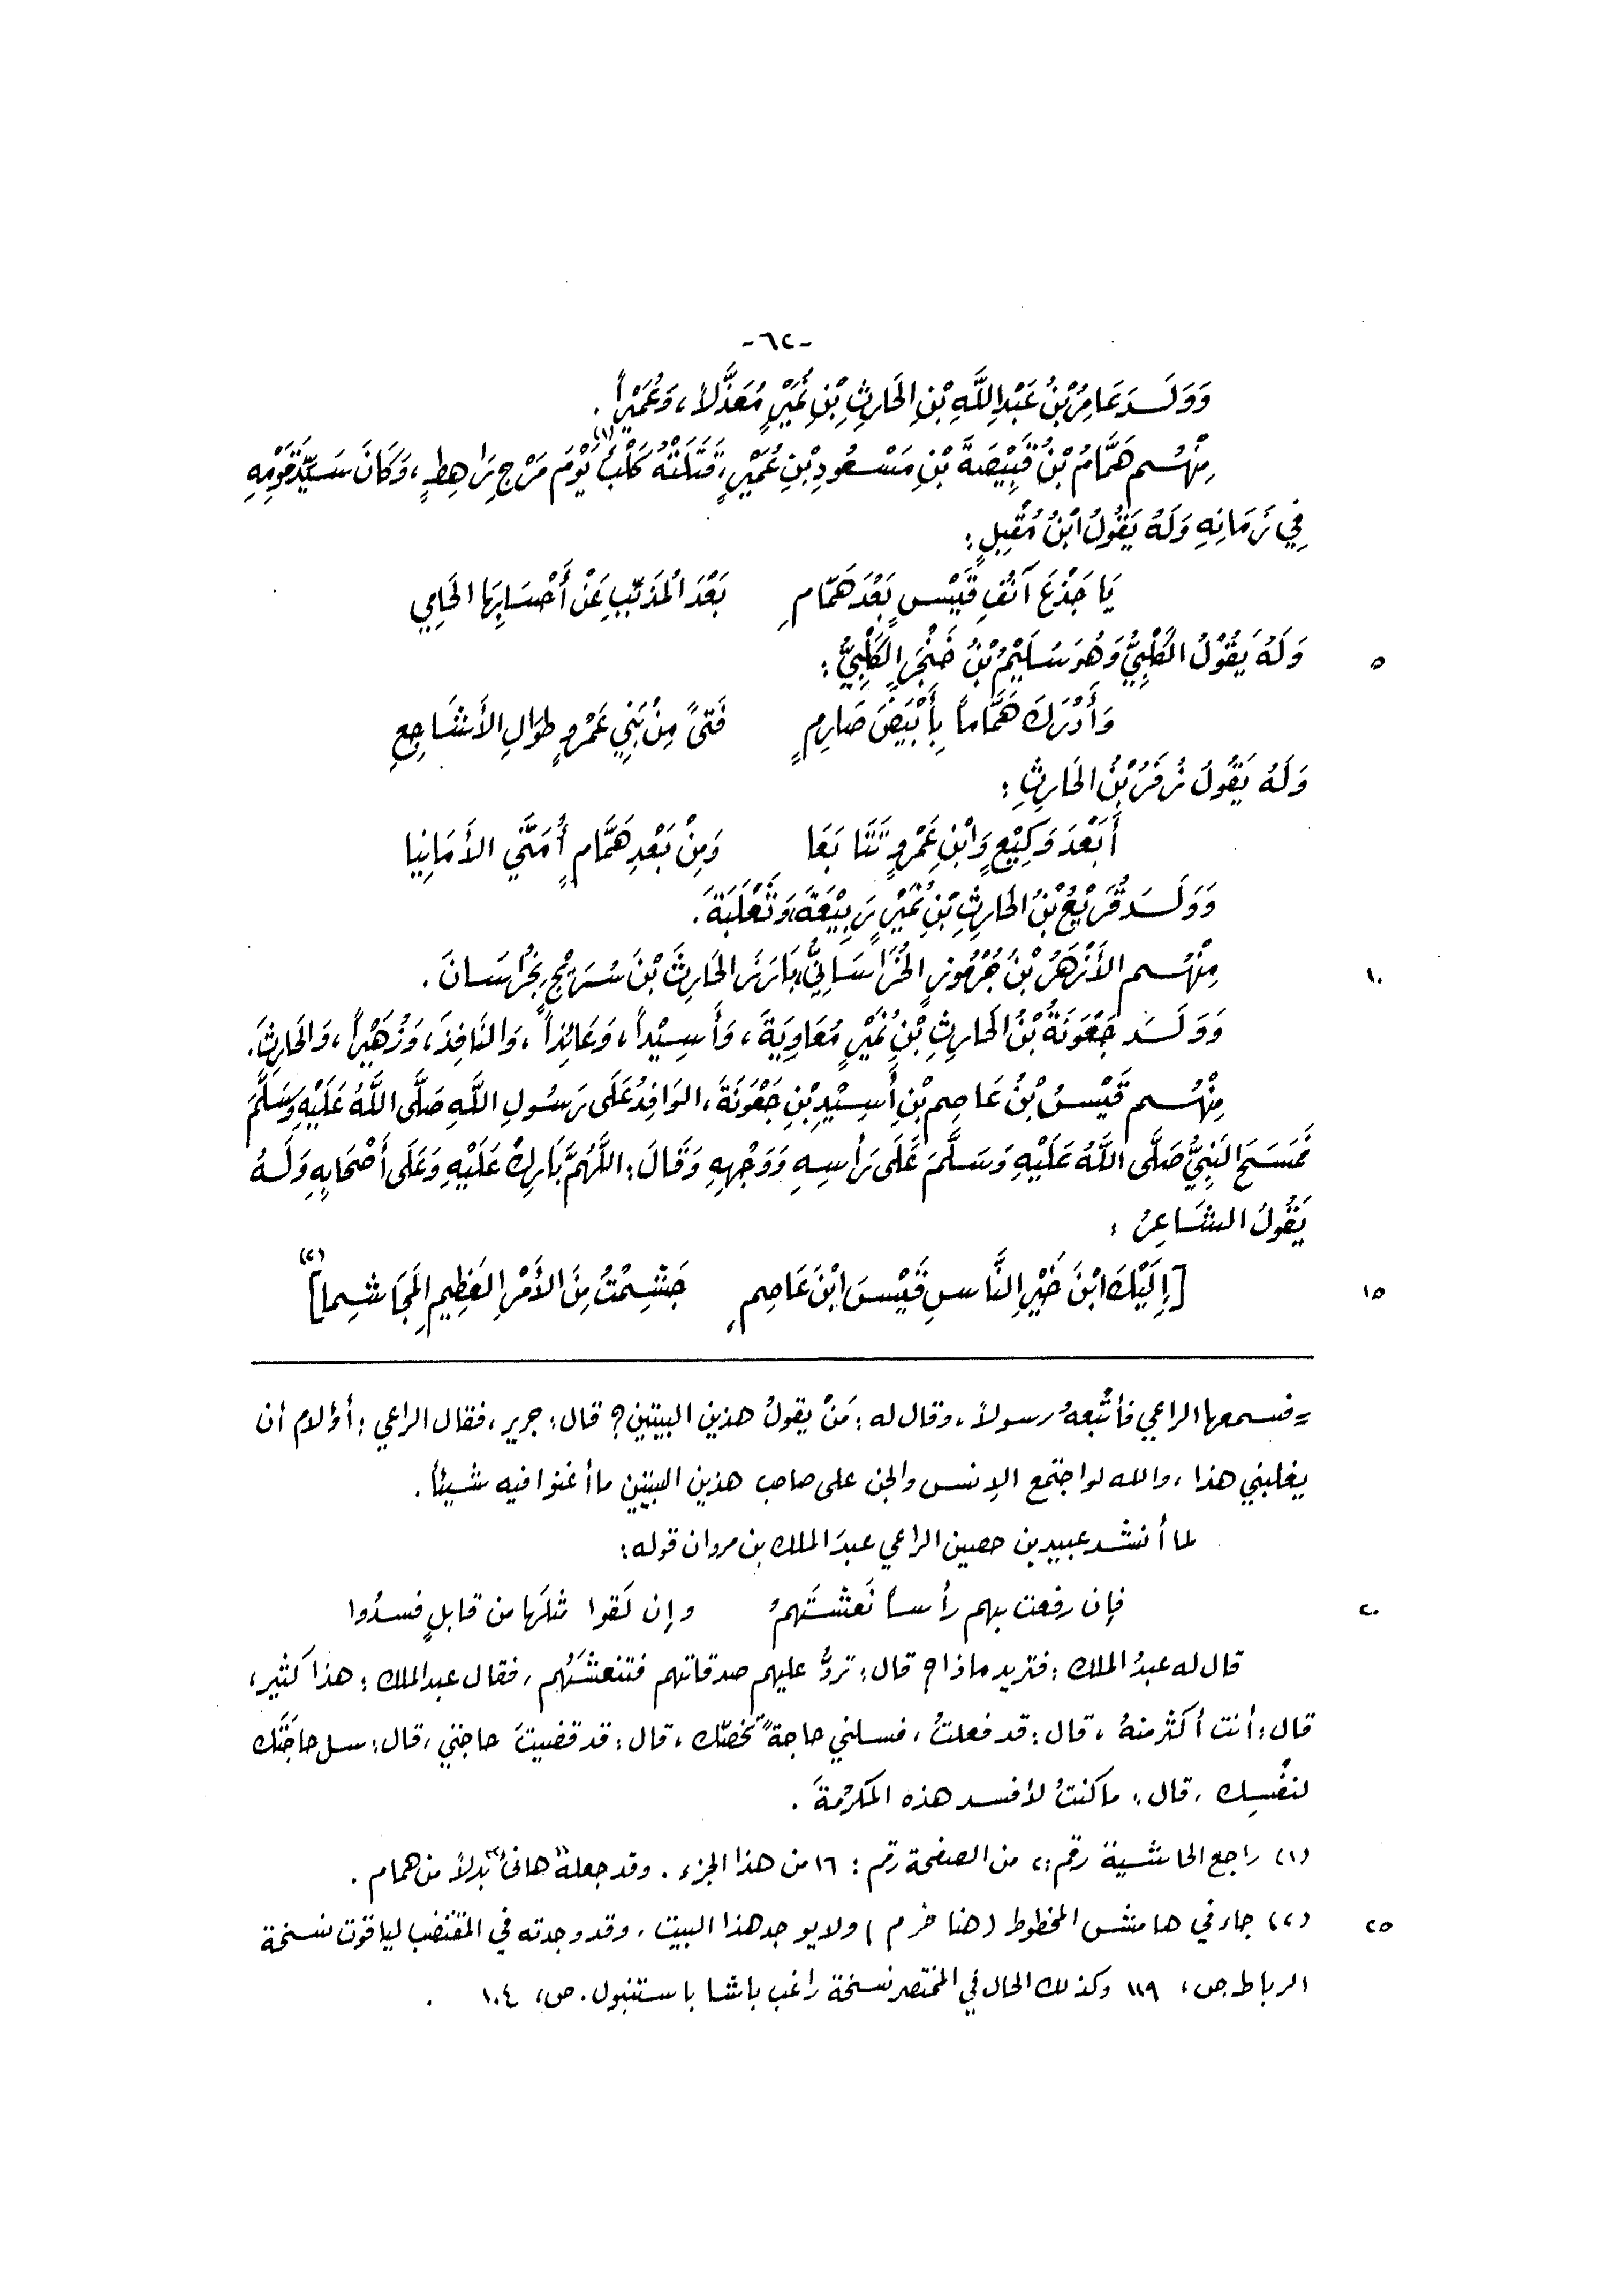 -٦٢-
وَوَلَـدَ عَامِرُ بْنُ عَبْدِاللَّهِ بْنِ الحَارِثِ بْنِ نُمَيْرٍ مُعَذَّلاً، وَعُمَيْراً.
مِنْهُـم هَمَّامُ بْنُ قَبِيْصَةَ بْنِ مَسْعُودِ بْنِ عُمَيْرٍ، قَتَلَتْهُ كَلْبُ (١) يَوْمَ مَرْجِ رَاهِطٍ، وَكَانَ سَيِّدَ قَوْمِهِ
فِي زَمَانِهِ وَلَهُ يَقُولُ ابْنُ مُقْبِلٍ:
يَا جَدْعَ آنُفِ قَيْسٍ بَعْدَ هَمَّامِ    بَعْدَ المُذَبِّبِ عَنْ أَحْسَابِهَا الحَامِي
٥ وَلَهُ يَقُوْلُ الكَلْبِيُّ وَهُوَ سَلَيْمُ بْنُ خَنْجَرٍ الكَلْبِيُّ:
وَأَدْرَكَ هَمَّاماً بِأَبْيَضَ صَارِمٍ    فَتىً مِنْ بَنِي عَمْرٍو طِوَالِ الأَشَاجِعِ
وَلَهُ يَقُولُ زُفَرُ بْنُ الحَارِثِ:
أَبَعْدَ وَكِيْعٍ وَابْنِ عَمْرٍو تَتَابَعَا    وَمِنْ بَعْدِ هَمَّامٍ أُمَنَّى الأَمَانِيا
وَوَلَـدَ قُرَيْعُ بْنُ الحَارِثِ بْنِ نُمَيْرٍ رَبِيْعَةَ، وَثَعْلَبَةَ.
١٠ مِنْهُـم الأَزْهَرُ بْنُ جُرْمُوزٍ الخُرَاسَانِيُّ، بَارَزَ الحَارِثَ بْنَ سُرَيْجٍ بِخُرَاسَانَ.
وَوَلَـدَ جَعْوَنَةُ بْنُ الحَارِثِ بْنِ نُمَيْرٍ مُعَاوِيَةَ، وَأَسِيْداً، وَعَائِذاً، وَالنَافِذَ، وَزُهَيْراً، وَالحَارِثَ.
مِنْهُـم قَيْسُ بْنُ عَاصِمِ بْنِ أَسِيْدِ بْنِ جَعْوَنَةَ، الوَافِدُ عَلَى رَسُولِ اللَّهِ صَلَّى اللَّهُ عَلَيْهِ وَسَلَّمَ
فَمَسَحَ النَبِيُّ صَلَّى اللَّهُ عَلَيْهِ وَسَلَّمَ عَلَى رَأْسِهِ وَوَجْهِهِ وَقَالَ: اللَّهُمَّ بَارِكْ عَلَيْهِ وَعَلَى أَصْحَابِهِ وَلَـهُ
يَقُولُ الشَاعِرُ:
١٥ [إِلَيْكَ ابْنَ خَيْرِ النَّاسِ قَيْسَ ابْنَ عَاصِمٍ    جَشِمْتُ مِنَ الأَمْرِ العَظِيمِ المَجَاشِما] (٢)
= فسمعها الراعي فأتْبعهُ رسولاً، وقال له: مَنْ يقولُ هذين البيتين؟ قال: جرير، فقال الراعي: أؤلام أن
يغلبني هذا، والله لو اجتمع الإنس والجن على صاحب هذين البيتين ما أغنوا فيه شيئاً.
لما أنشد عبيد بن حصين الراعي عبدَ الملك بن مروان قوله:
٢٠ فإن رفعت بهم رأساً نَعشتَهمُ    وإن لَقوا مثلَها من قابلٍ فسدُوا
قال له عبدُ الملك: فتريد ماذا؟ قال: تردُّ عليهم صدقاتهم فتنعشَهُم، فقال عبد الملك: هذا كثير،
قال: أنت أكثر منهُ، قال: قد فعلتُ، فسلني حاجةً تخصّك، قال: قد قضيتَ حاجتي، قال: سل حاجَتَك
لنفْسِك، قال: ما كنتُ لأفسد هذه المكرُمةَ.
(١) راجع الحاشية رقم: ٢ من الصفحة رقم: ١٦ من هذا الجزء. وقد جعله "هانئاً" بدلاً من همام.
٢٥ (٢) جاء في هامش المخطوط (هنا خرم) ولا يوجد هذا البيت، وقد وجدته في المقتضب لياقوت نسخة
الرباط ص، ١١٩ وكذلك الحال في المختصر نسخة راغب باشا باستنبول. ص، ١٠٤ .